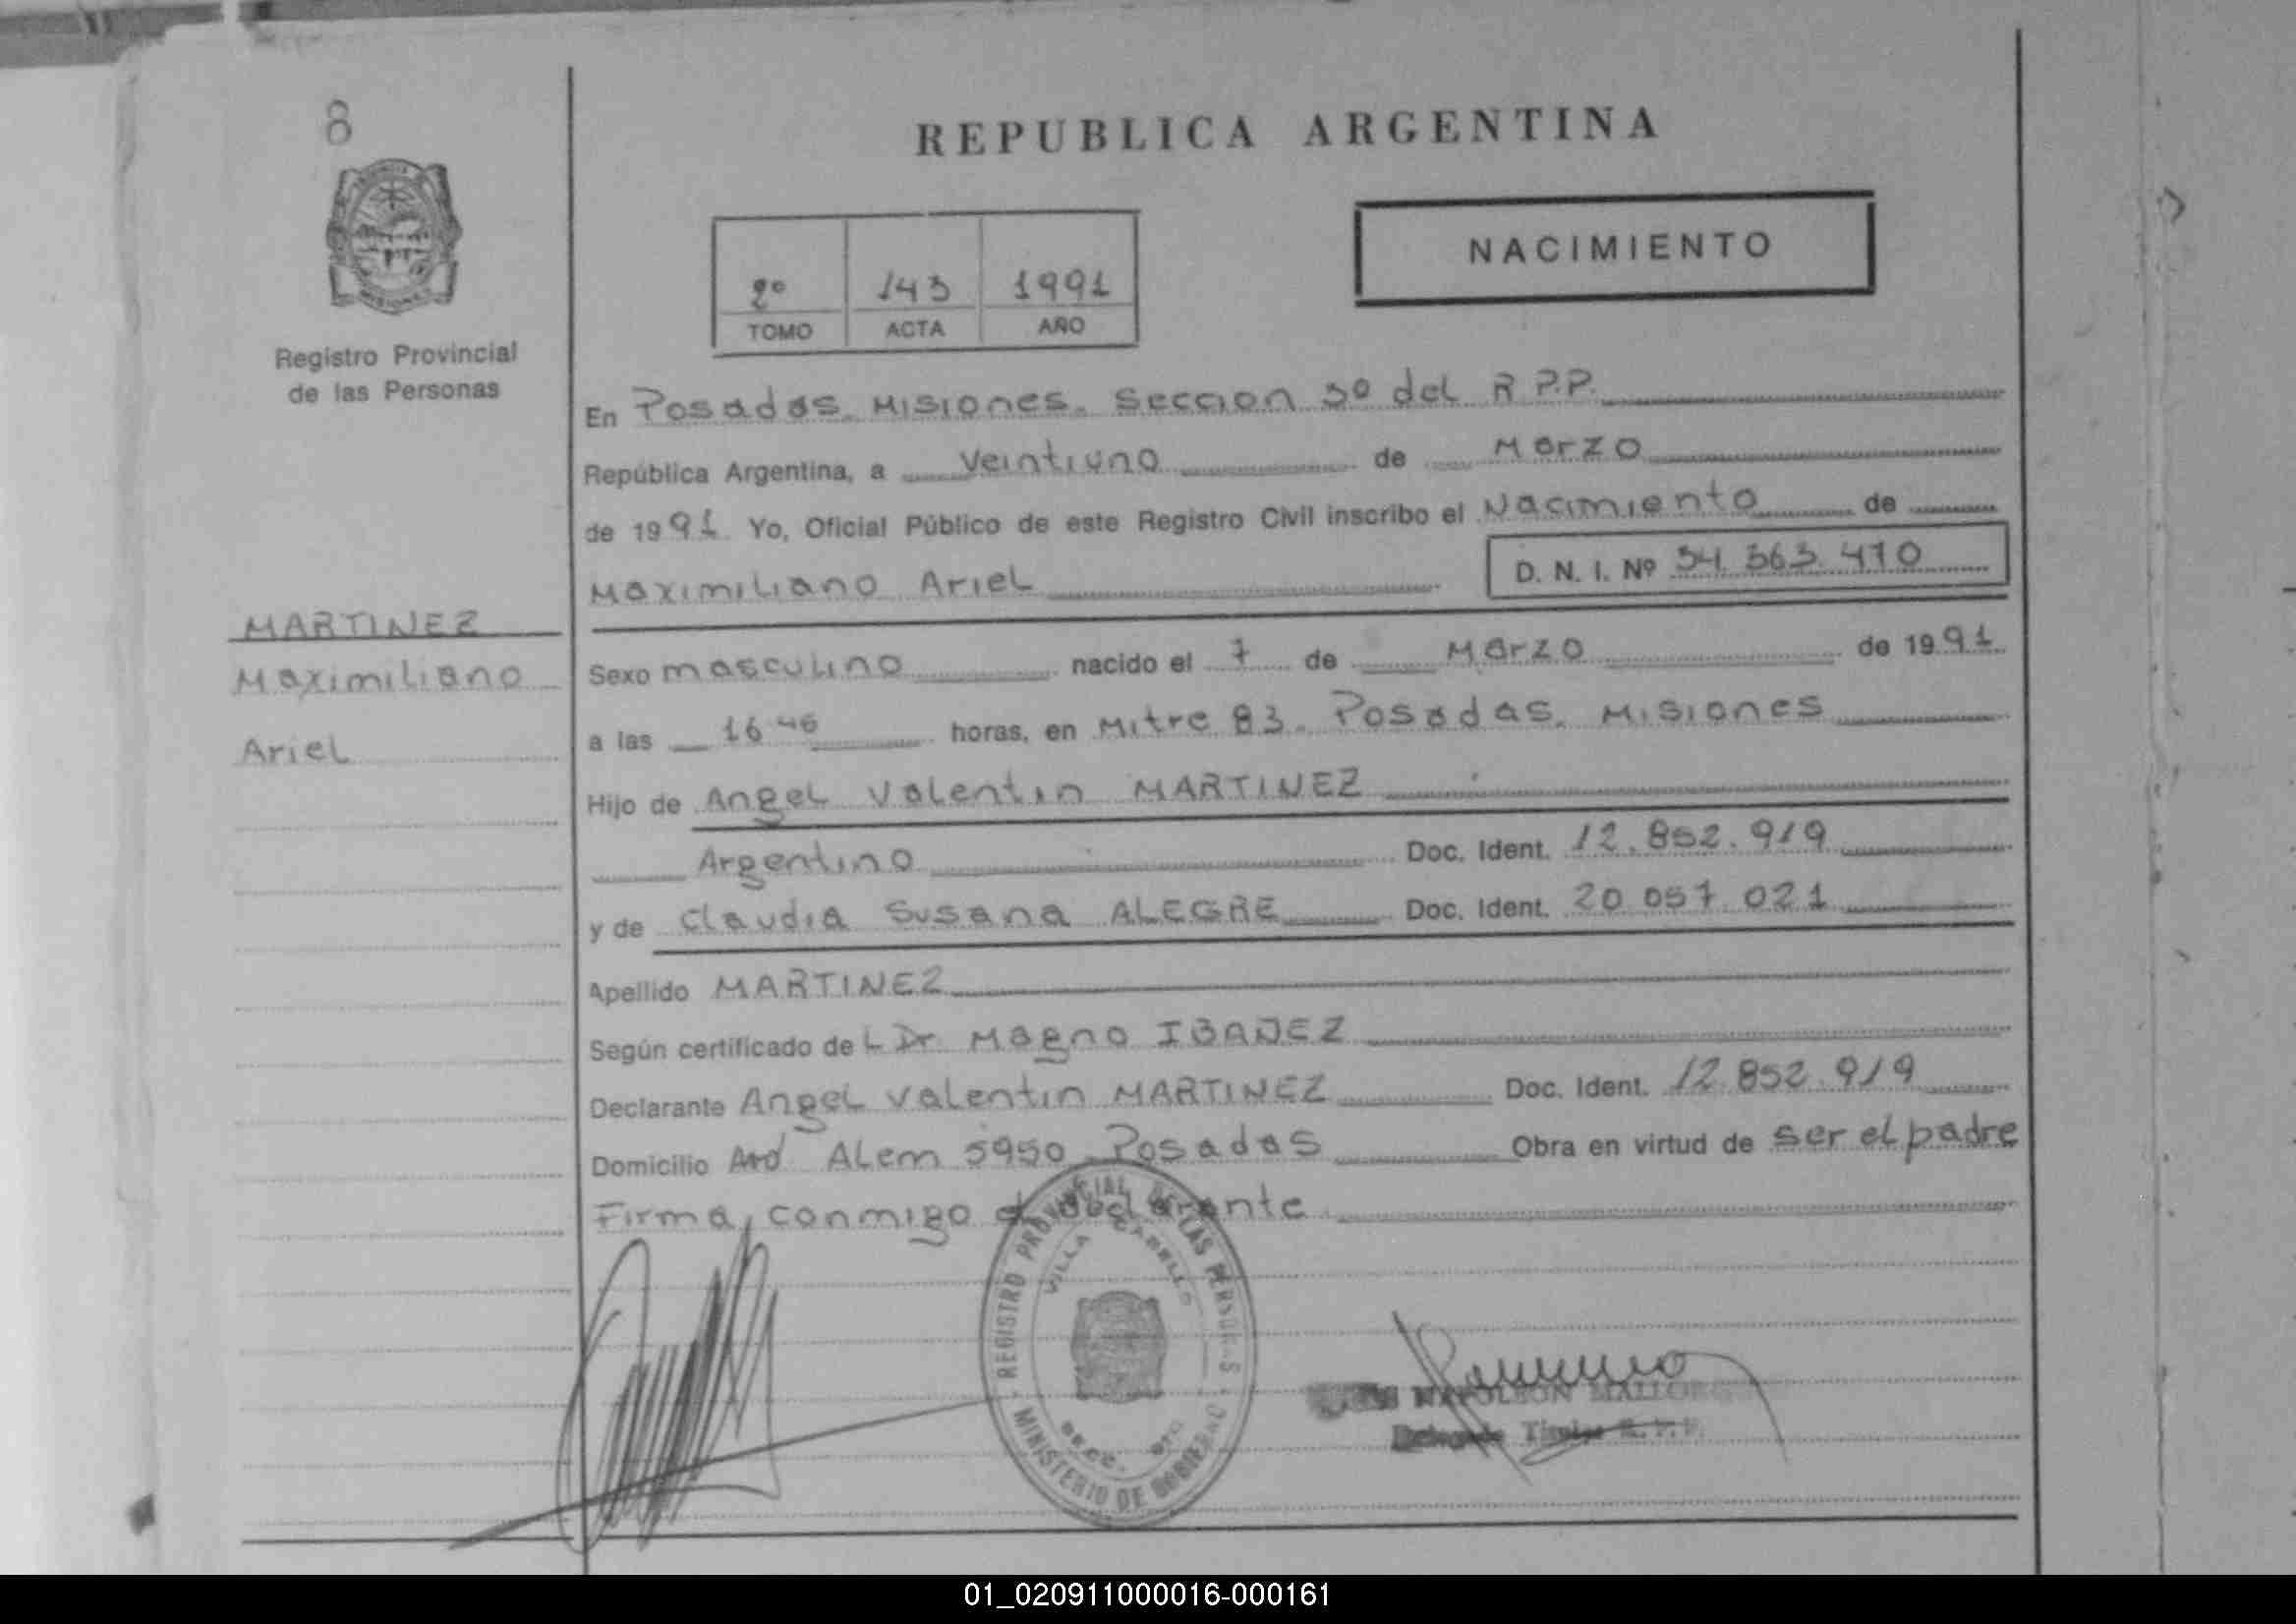 8
REPUBLICA ARGENTINA
NACIMIENTO
2º 143 1991
TOMO ACTA AÑO
Registro Provincial
de las Personas
En Posadas. Misiones. Seccion 3º del R.P.P.
República Argentina, a veintiuno de Marzo
de 1991. Yo, Oficial Público de este Registro Civil inscribo el Nacimiento de
Maximiliano Ariel D. N. I. Nº 34.363.470
MARTINEZ
Maximiliano
Ariel
Sexo masculino nacido el 7 de Marzo de 1991.
a las 16 46 horas, en Mitre 83. Posadas. Misiones
Hijo de Angel Valentin MARTINEZ
Argentino Doc. Ident. 12.852.919
y de Claudia Susana ALEGRE Doc. Ident. 20.057.021
Apellido MARTINEZ
Según certificado del Dr. Magno IBAÑEZ
Declarante Angel Valentin MARTINEZ Doc. Ident. 12.852.919
Domicilio Alem 5950 Posadas Obra en virtud de ser el padre
Firma, conmigo el declarante
REGISTRO PROVINCIAL DE LAS PERSONAS
VILLA CABELLO
MINISTERIO DE GOBIERNO
NAPOLEON
Delegado Titular R.P.P.
01_020911000016-000161